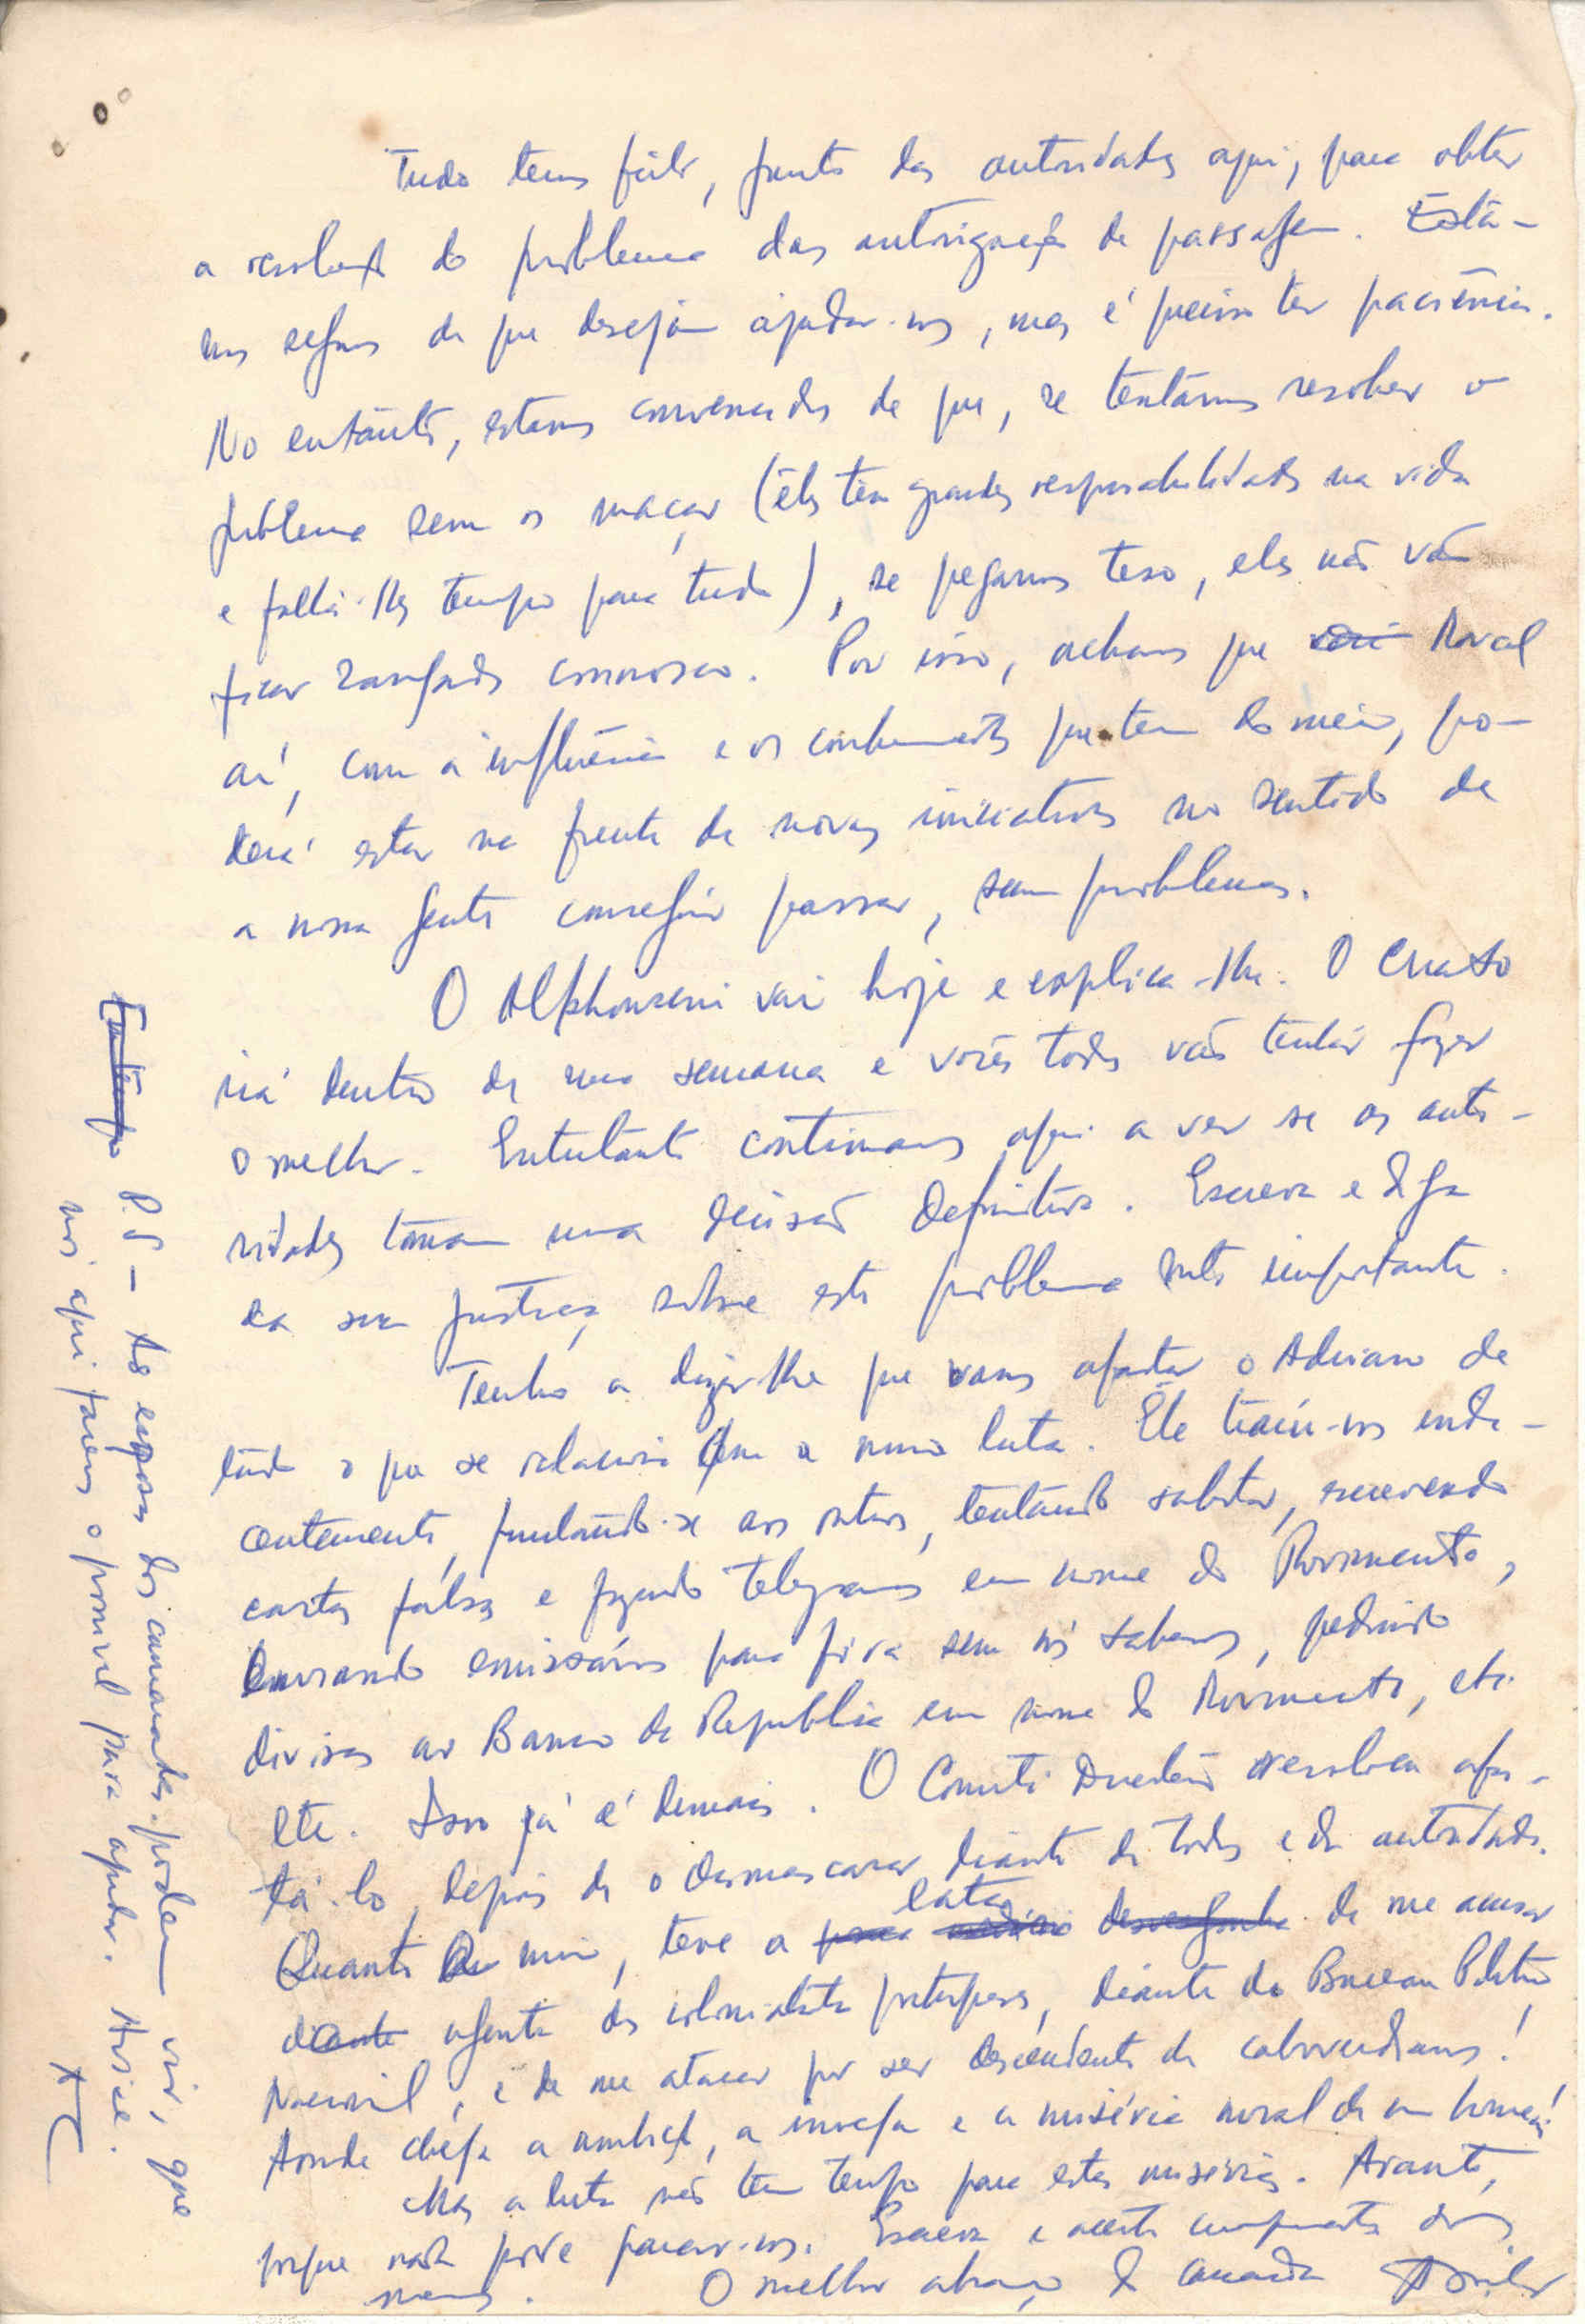 Tudo temos feito, junto das autoridades aqui, para obter
a resolução do problema das autorizações de passagem. Esta-
mos seguros de que desejam ajudar-nos, mas é preciso ter paciência.
No entanto, estamos convencidos de que, se tentarmos resolver o
problema sem os maçar (êles têm grandes responsabilidades na vida
e falta-lhes tempo para tudo), se pegarmos teso, eles não vão
ficar zangados connosco. Por isso, achamos que Marcel
aí, com a influência e os conhecimentos que tem do meio, po-
derá estar na frente de novas iniciativas no sentido de
a nossa gente conseguir passar, sem problemas.
O Alphousseni vai hoje e explica-lhe. O
irá dentro de uma semana e vocês todos vão tentar fazer
o melhor. Entretanto continuamos aqui a ver se as auto-
ridades tomam uma decisão definitiva. Escreva e diga
da sua justiça, sobre este problema muito importante.
Tenho a dizer-lhe que vamos afastar o Adriano de
tudo o que se relaciona com a nossa luta. Êle traíu-nos inde-
centemente, juntando-se aos outros, tentando sabotar, escrevendo
cartas falsas e fazendo telegramas em nome do Movimento,
enviando emissários para fóra sem nós sabermos, pedindo
divisas ao Banco da Republica em nome do Movimento, etc.
etc. Isso já é demais. O Comité Director resolveu afas-
tá-lo, depois de o desmascarar diante de todos e da autoridade.
Quanto a mim, teve a lata de me acusar
agente dos colonialistas portugueses, diante do Bureau Politico
Nacional, e de me atacar por ser descendente de caboverdianos!
Aonde chega a ambição, a inveja e a miséria moral de um homem!
Mas a luta não tem tempo para estas misérias. Avante,
porque nada pode parar-nos. Escreva e aceite cumprimentos dos
nossos. O melhor abraço do camarada
P.S – As esposas dos camaradas podem vir, que
nós aqui faremos o possivel para ajudar. Avise.